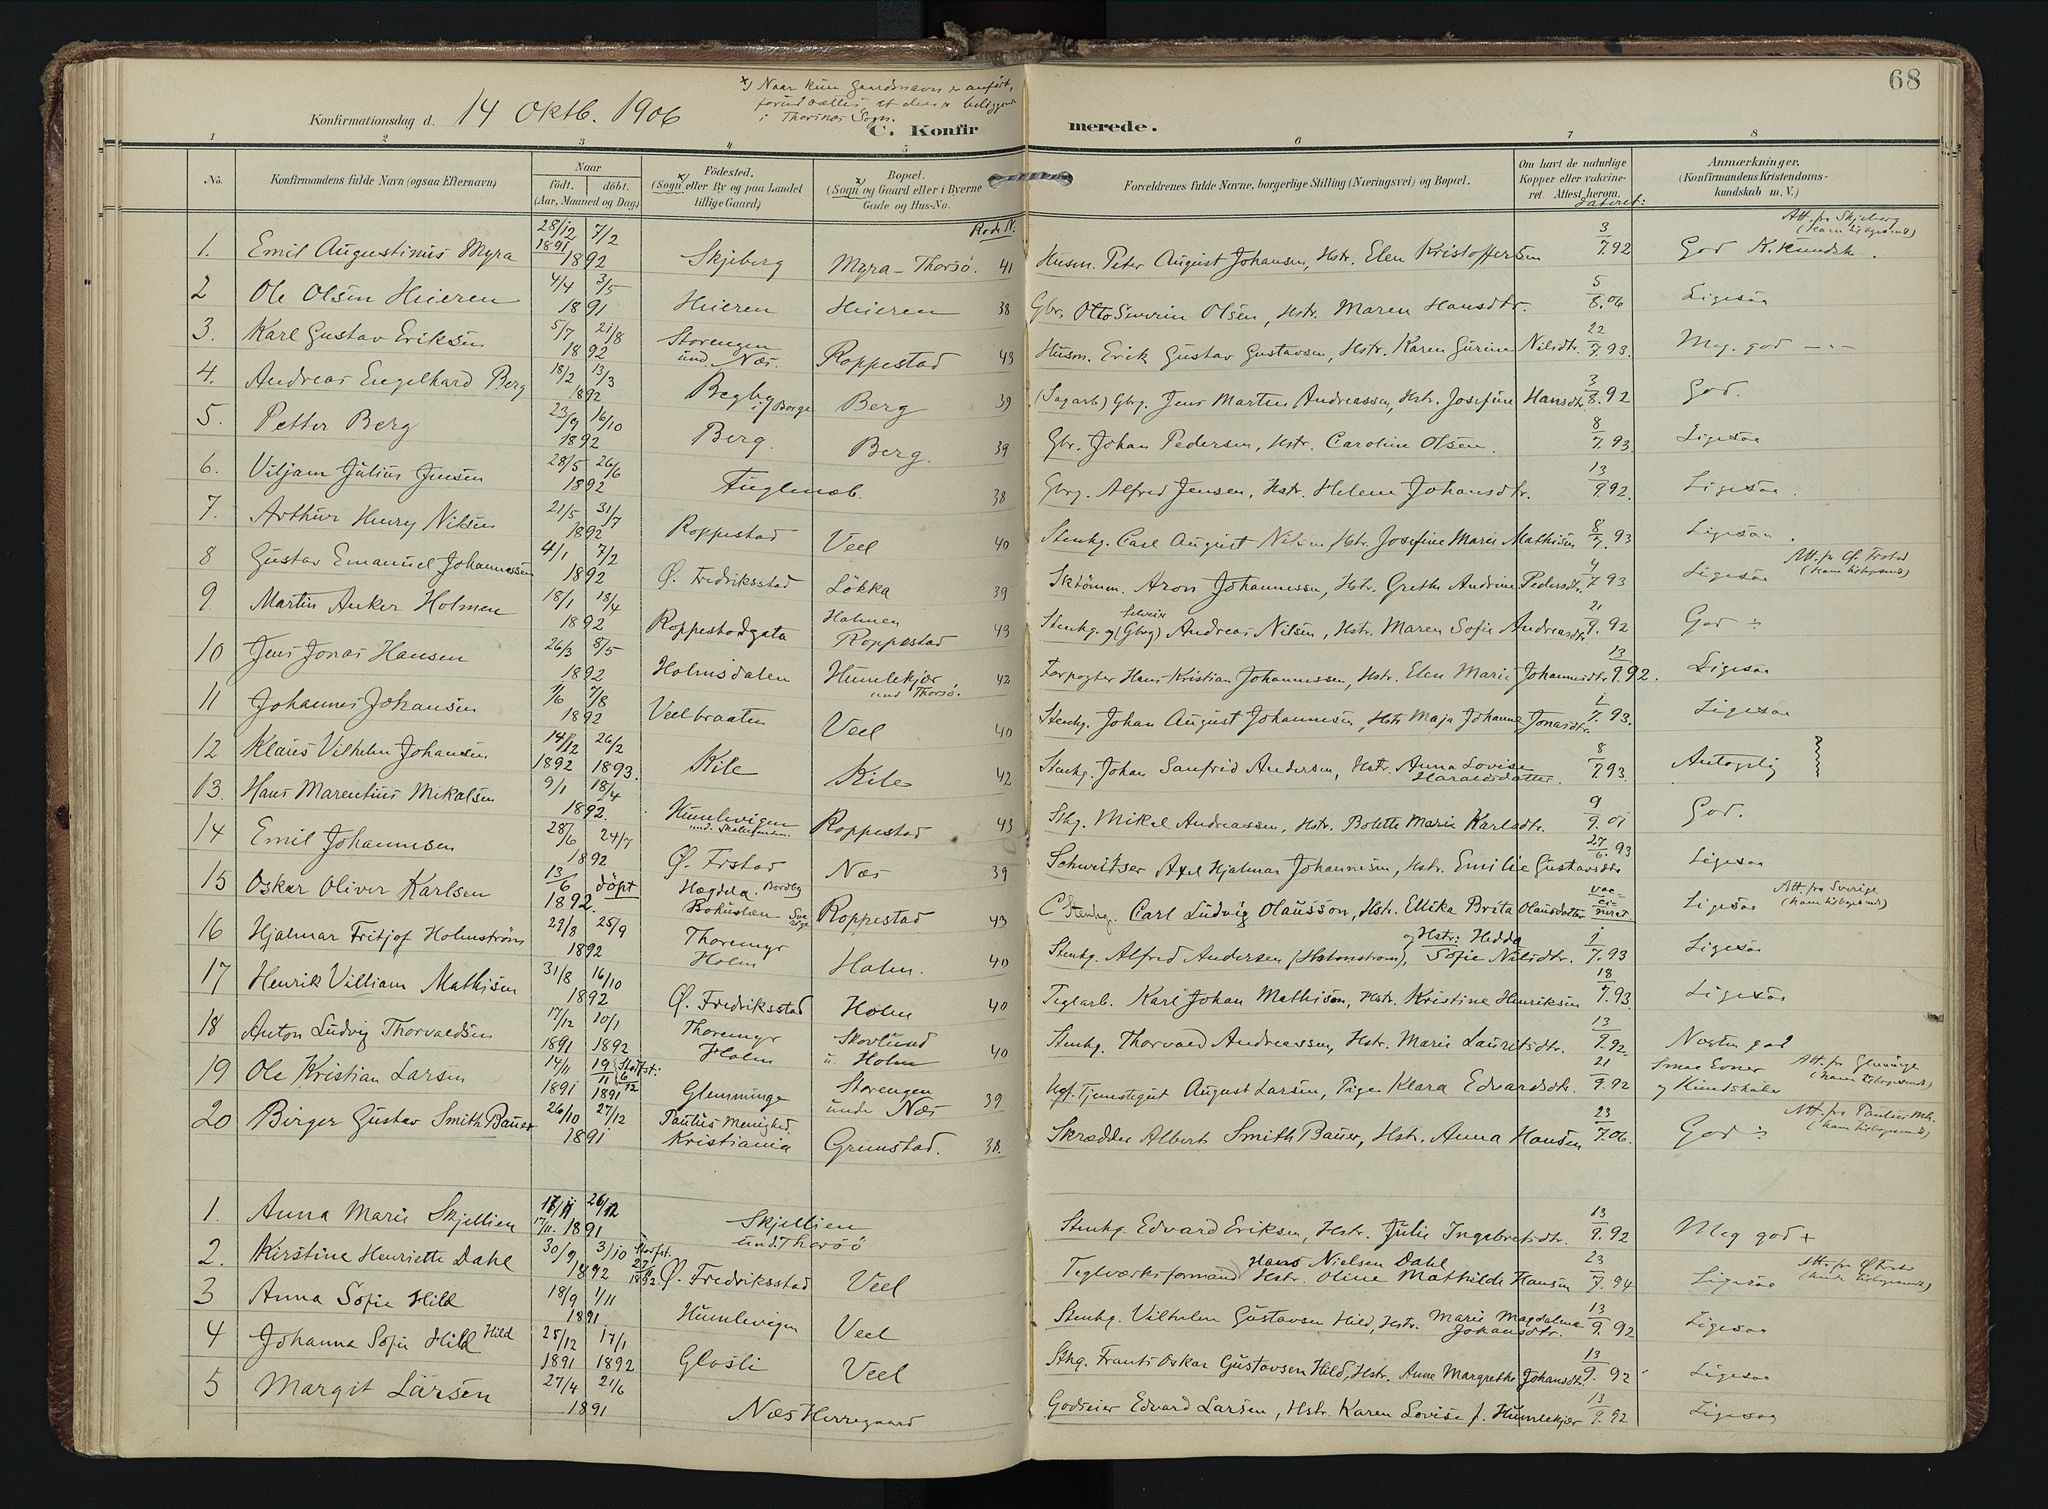 68
Konfirmationsdag d. 14 Oktb. 1906
x) Naar kun Gaardsnavn er anført,
forudsættes at den er beliggende
i Thorsnæs Sogn.
C. Konfir merede.
1 2 3 4 5 6 7 8
No. Konfirmandens fulde Navn (ogsaa Efternavn). Naar født. døbt. (Aar, Maaned og Dag). Fødested. (Sogn eller By og paa Landet tillige Gaard). Bopæl. (Sogn og Gaard eller i Byerne Gade og Hus-No. Forældrenes fulde Navne, borgerlige Stilling (Næringsvei) og Bopæl. Om havt de naturlige Kopper eller vakcineret. Attest herom. dateret: Anmærkninger. (Konfirmandens Kristendomskundskab m. V.)
Rode N.
1. Emil Augustinus Myra 28/12 1891 7/2 1892 Skjeberg Myra-Thorsø. 41 Husm. Peter August Johansen, Hstr. Elen Kristoffersen 3/7.92 God K.kundsk. Att. fra Skjeberg
2 Ole Olsen Heieren 4/4 3/5 1891 Heieren Heieren 38 Gbr. Otto Severin Olsen, Hstr. Maren Hansdtr. 5/8.06 Ligesaa
3. Karl Gustav Eriksen 5/7 21/8 1892 Storengen und. Næs. Roppestad 43 Husm. Erik Gustav Gustavsen, Hstr. Karen Gurine Nilsdtr. 22/7.93. Meg. god
4. Andreas Engelhard Berg 18/2 13/3 1892 Begby i Borge Berg 39 (Sagarb) Gbrg. Jens Martin Andreassen, Hstr. Josefine Hansdtr. 3/8.92 God.
5. Petter Berg 23/9 16/10 1892 Berg. Berg. 39 Gbr. Johan Pedersen, Hstr. Caroline Olsen. 8/7.93. Ligesaa
6. Viljam Julius Jensen 28/5 26/6 1892 Fuglenæb. 38 Gbrg. Alfred Jensen, Hstr. Helene Johansdtr. 13/9.92. Ligesaa.
7. Arthur Henry Nilsen 21/5 31/7 1892 Roppestad Veel 40 Stenhg. Carl August Nilsen, Hstr. Josefine Marie Mathisen 8/7.93 Ligesaa.
8 Gustav Emanuel Johannessen 4/1 7/2 1892 Ø. Fredriksstad Løkka 39 Sktømm. Aron Johannessen, Hstr. Grethe Andrine Pedersdtr. 4/7 93 Ligesaa
9. Martin Anker Holmen 18/1 18/4 1892 Roppestadgata Holmen Roppestad 43 Stenhg. og (Gbrg) selveier Andreas Nilsen, Hstr. Maren Sofie Andreasdtr. 21/9.92 God
10 Jens Jonas Hansen 26/3 8/5 1892 Holmsdalen Humlekjær und Thorsø. 42 Forpagter Hans Kristian Johannessen, Hstr. Elen Marie Johannesdtr. 13/9.92. Ligesaa
11 Johannes Johansen 7/6 7/8 1892 Veelbraaten Veel 40 Stenhg. Johan August Johannesen, Hstr Maja Johanne Jonasdtr. 1/7.93. Ligesaa
12 Klaus Vilhelm Johansen 14/12 1892 26/2 1893. Kile Kile 42 Stenhg. Johan Sanfrid Andersen, Hstr. Anna Lovise Haraldsdatter. 8/7.93. Antagelig
13. Hans Marentius Mikalsen 9/1 18/4 1892. Humlevigen Roppestad 43 Sthg. Mikal Andreassen, Hstr. Bolette Marie Karlsdtr. 9/9.01 God.
14 Emil Johannesen 28/6 24/7 1892 Ø. Frstad Næs 39 Schweitser Axel Hjalmar Johannesen, Hstr. Emilie Gustavsdtr 27/6.93 Ligesaa
15 Oskar Oliver Karlsen 13/6 1892. døpt Hægdela. Bohuslæn Roppestad 43 Stenhg. Carl Ludvig Olausson, Hstr. Ellika Brita Olausdatter vaccineret Ligesaa Att. fra Sverige
16 Hjalmar Fritjof Holmstrøm 29/8 25/9 1892 Thoremyr Holm Holm. 40 Stenhg. Alfred Andersen (Holmstrøm), og Hstr: Hedda Sofie Nilsdtr. 1/7.93 Ligesaa
17 Henrik Villiam Mathisen 31/8 16/10 1892 Ø. Fredriksstad Holm 40 Teglarb. Karl Johan Mathisen, Hstr. Kristine Henriksen 18/7.93. Ligesaa
18 Anton Ludvig Thorvaldsen 17/12 1891 10/1 1892 Thoremyr Holm Skovlund u. Holm 40 Stenhg. Thorvald Andreassen, Hstr. Marie Lauritsdtr. 13/9.92. Næsten god
19 Ole Kristian Larsen 14/11 1891 19/11 1891 Stadfst: 6/12 Glemminge Storengen under Næs 39 Ugf. Tjenstegut August Larsen, Pige Klara Edvardsdtr. 21/9.92 Smaa Evner og Kundskaber Att. fra Glemminge
20 Birger Gustav Smith Bauer 26/10 27/12 1891 Paulus Menighed Kristiania Grimstad. 38. Skrædder Albert Smith Bauer, Hstr. Anna Hansen 23/7.06. God Att. fra Paulus Mh.
1. Anna Marie Skjellien 17/11 26/12 17/11. 1891 Skjellien und. Thorsø Stenhg. Edvard Eriksen, Hstr. Julie Ingebretsdtr. 13/9.92 Meg god +
2. Kirstine Henriette Dahl 30/9 3/10 1892 Stadfst. Ø. Fredriksstad Veel Teglværksformand Hans Nielsen Dahl Hstr. Oline Mathilde Hansen 23/7.94 Ligesaa
3 Anna Sofie Hild 18/9 1/11 1891 Humlevigen Veel Stenhg. Vilhelm Gustavsen Hild, Hstr. Marie Magdalena Johansdtr. 13/9.92 Ligesaa
4 Johanna Sofie Hild Hild 25/12 1891 17/1 1892 Glosli Veel Sthg. Frants Oskar Gustavsen Hild, Hstr. Anne Margrethe Johansdtr. 13/9.92 Ligesaa
5 Margit Larsen 27/4 21/6 1891 Næs Herregaard Godseier Edvard Larsen, Hstr. Karen Lovise f. Humlekjær 13/9.92 Ligesaa